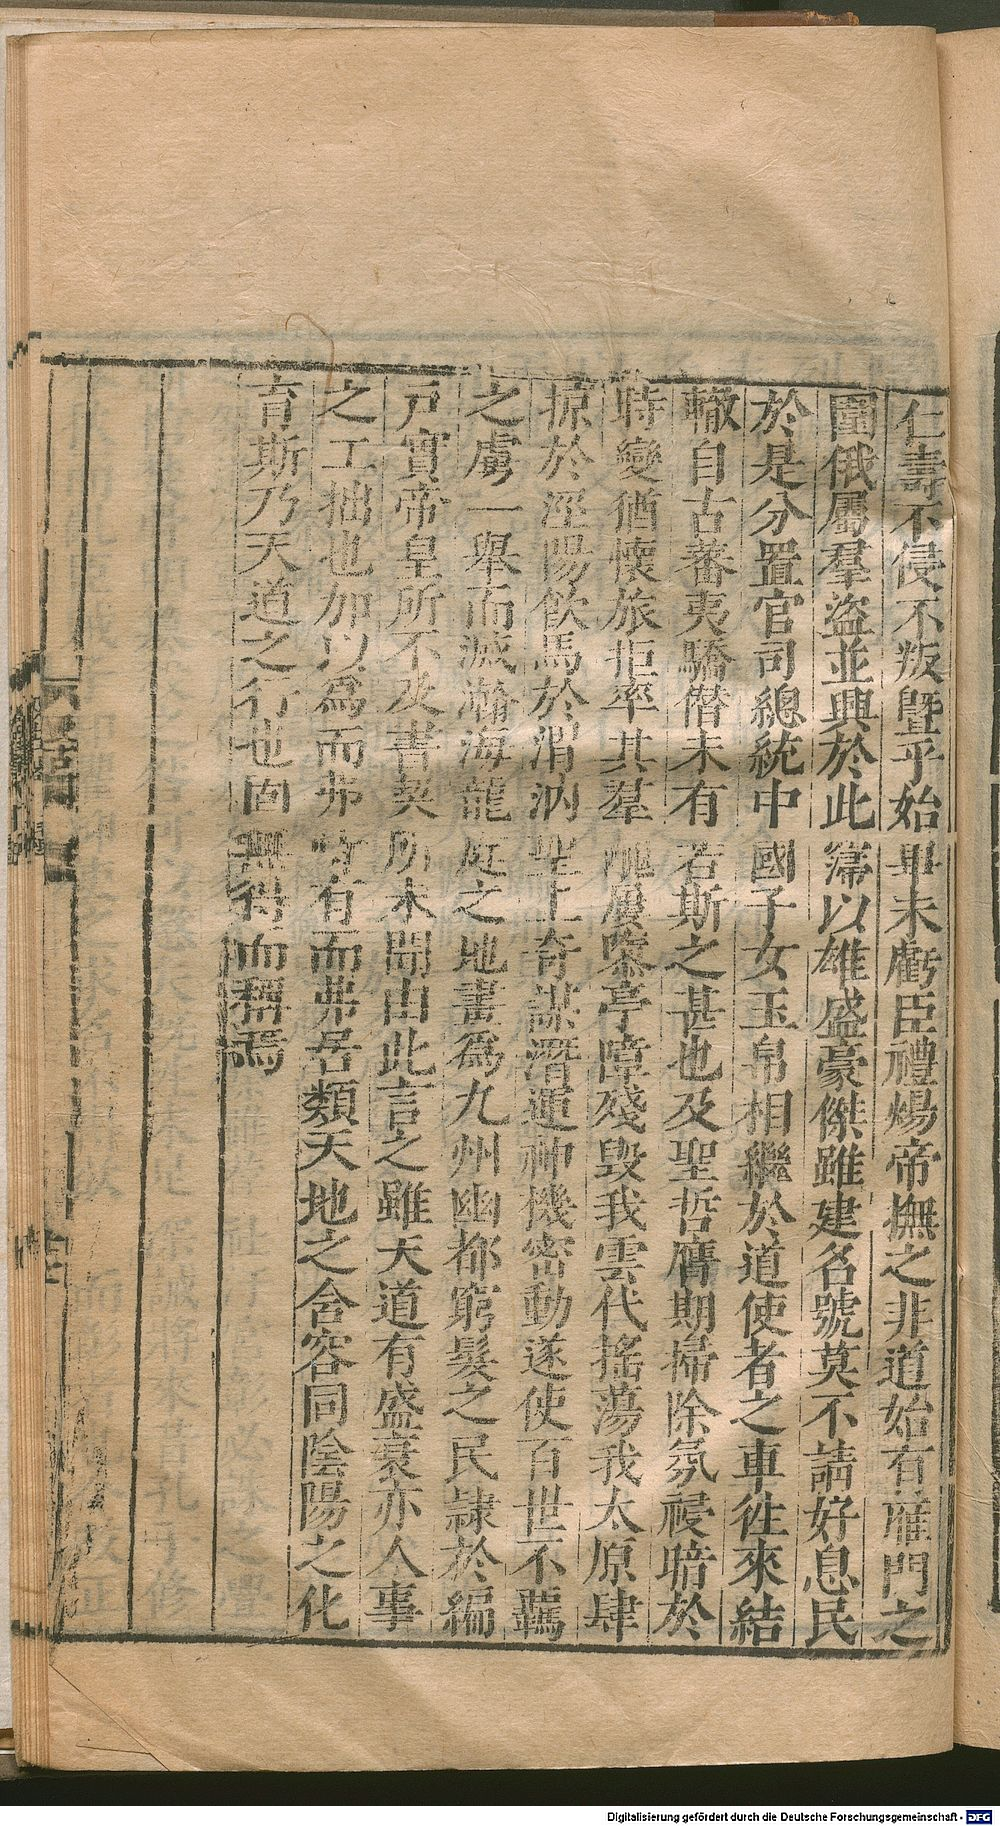 仁壽不侵不叛暨乎始畢未虧臣禮煬帝撫之非道始有雁門之
圍俄屬羣盜並興於此寖以雄盛豪傑雖建名號莫不請好息民
於是分置官司總統中國子女玉帛相繼於道使者之車往來結
轍自古蕃夷驕僣未有若斯之甚也及聖哲膺期掃除氛祲暗於
時變猶懷旅拒率其羣醜屢隳亭障殘毀我雲代搖蕩我太原肆
掠於涇陽飲馬於渭汭聖上奇謀潛運神機密動遂使百世不羈
之虜一舉而滅瀚海龍庭之地畫爲九州幽都窮髮之民隸於編
戶實帝皇所不及書契所未聞由此言之雖天道有盛衰亦人事
之工拙也加以爲而弗恃有而弗居類天地之含容同陰陽之化
育斯乃天道之行也固無得而稱焉
Digitalisierung gefördert durch die Deutsche Forschungsgemeinschaft - DFG